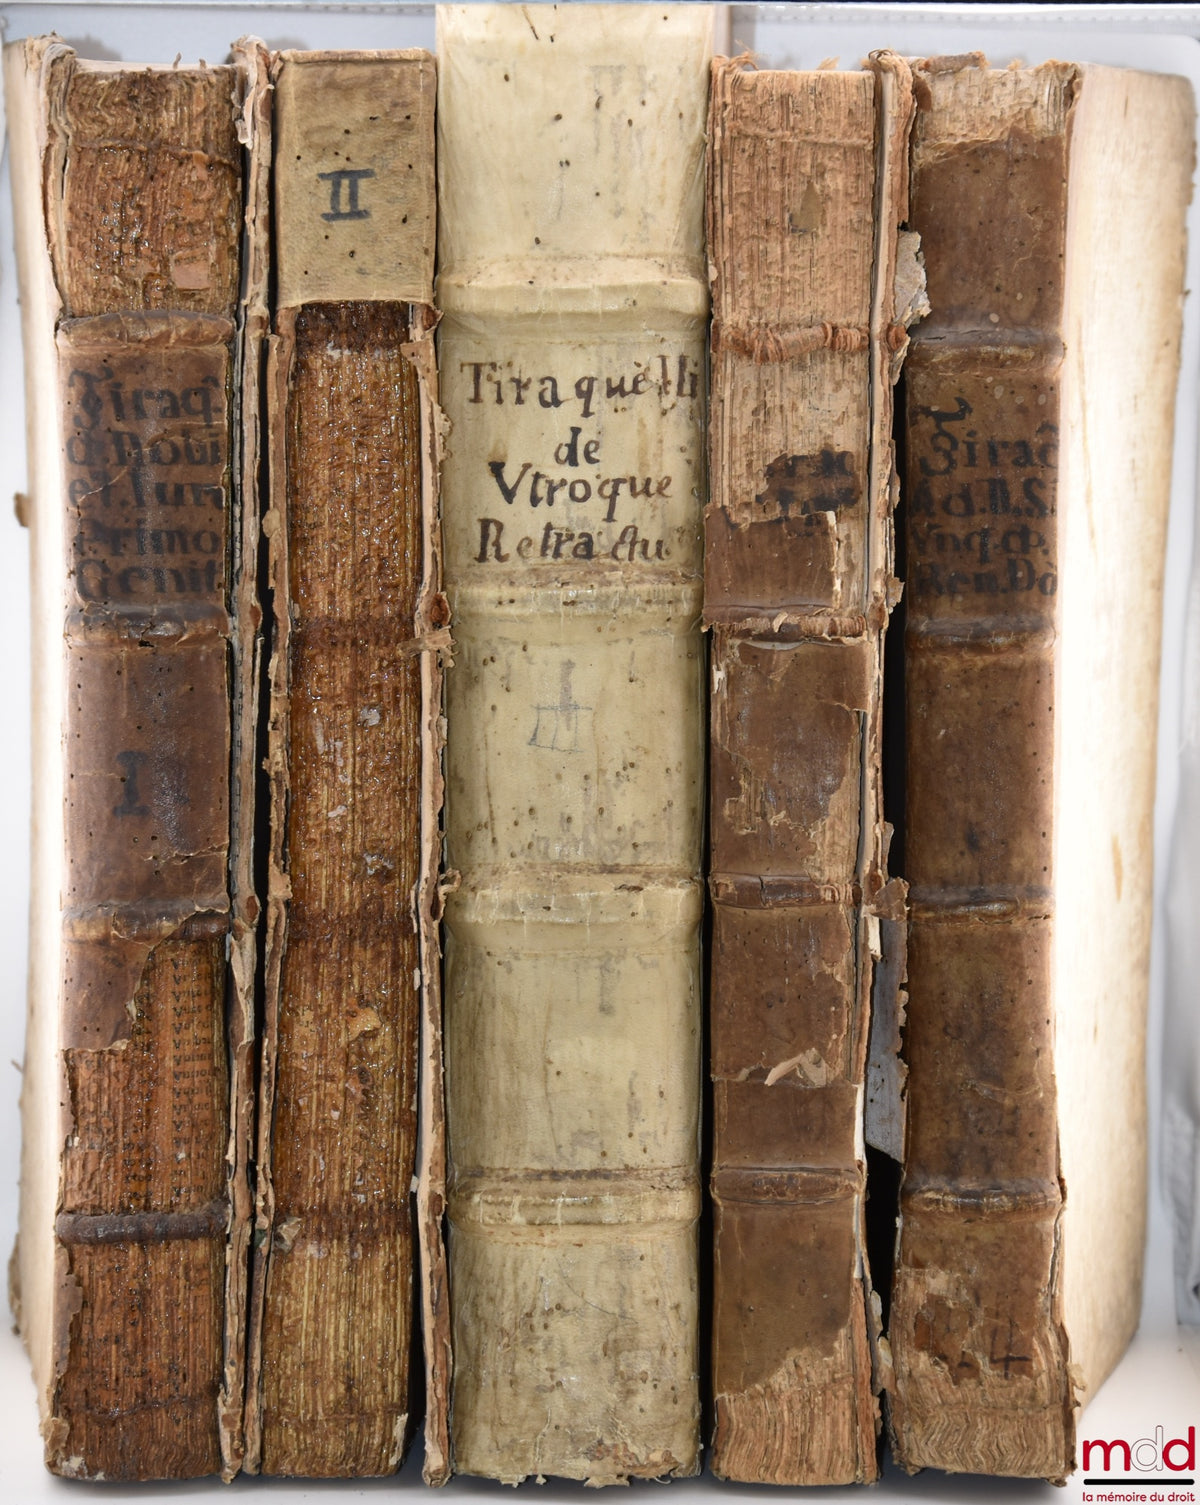 Tiraq̃.
d. Nobi
et. Iure
Primo
Genit
I
II
Tiraquèlli
de
Vtroque
Retractu.
Tiraq̃
Ad. N. Si
Vnq. &.
Reu. Dò
mdd
la mémoire du droit